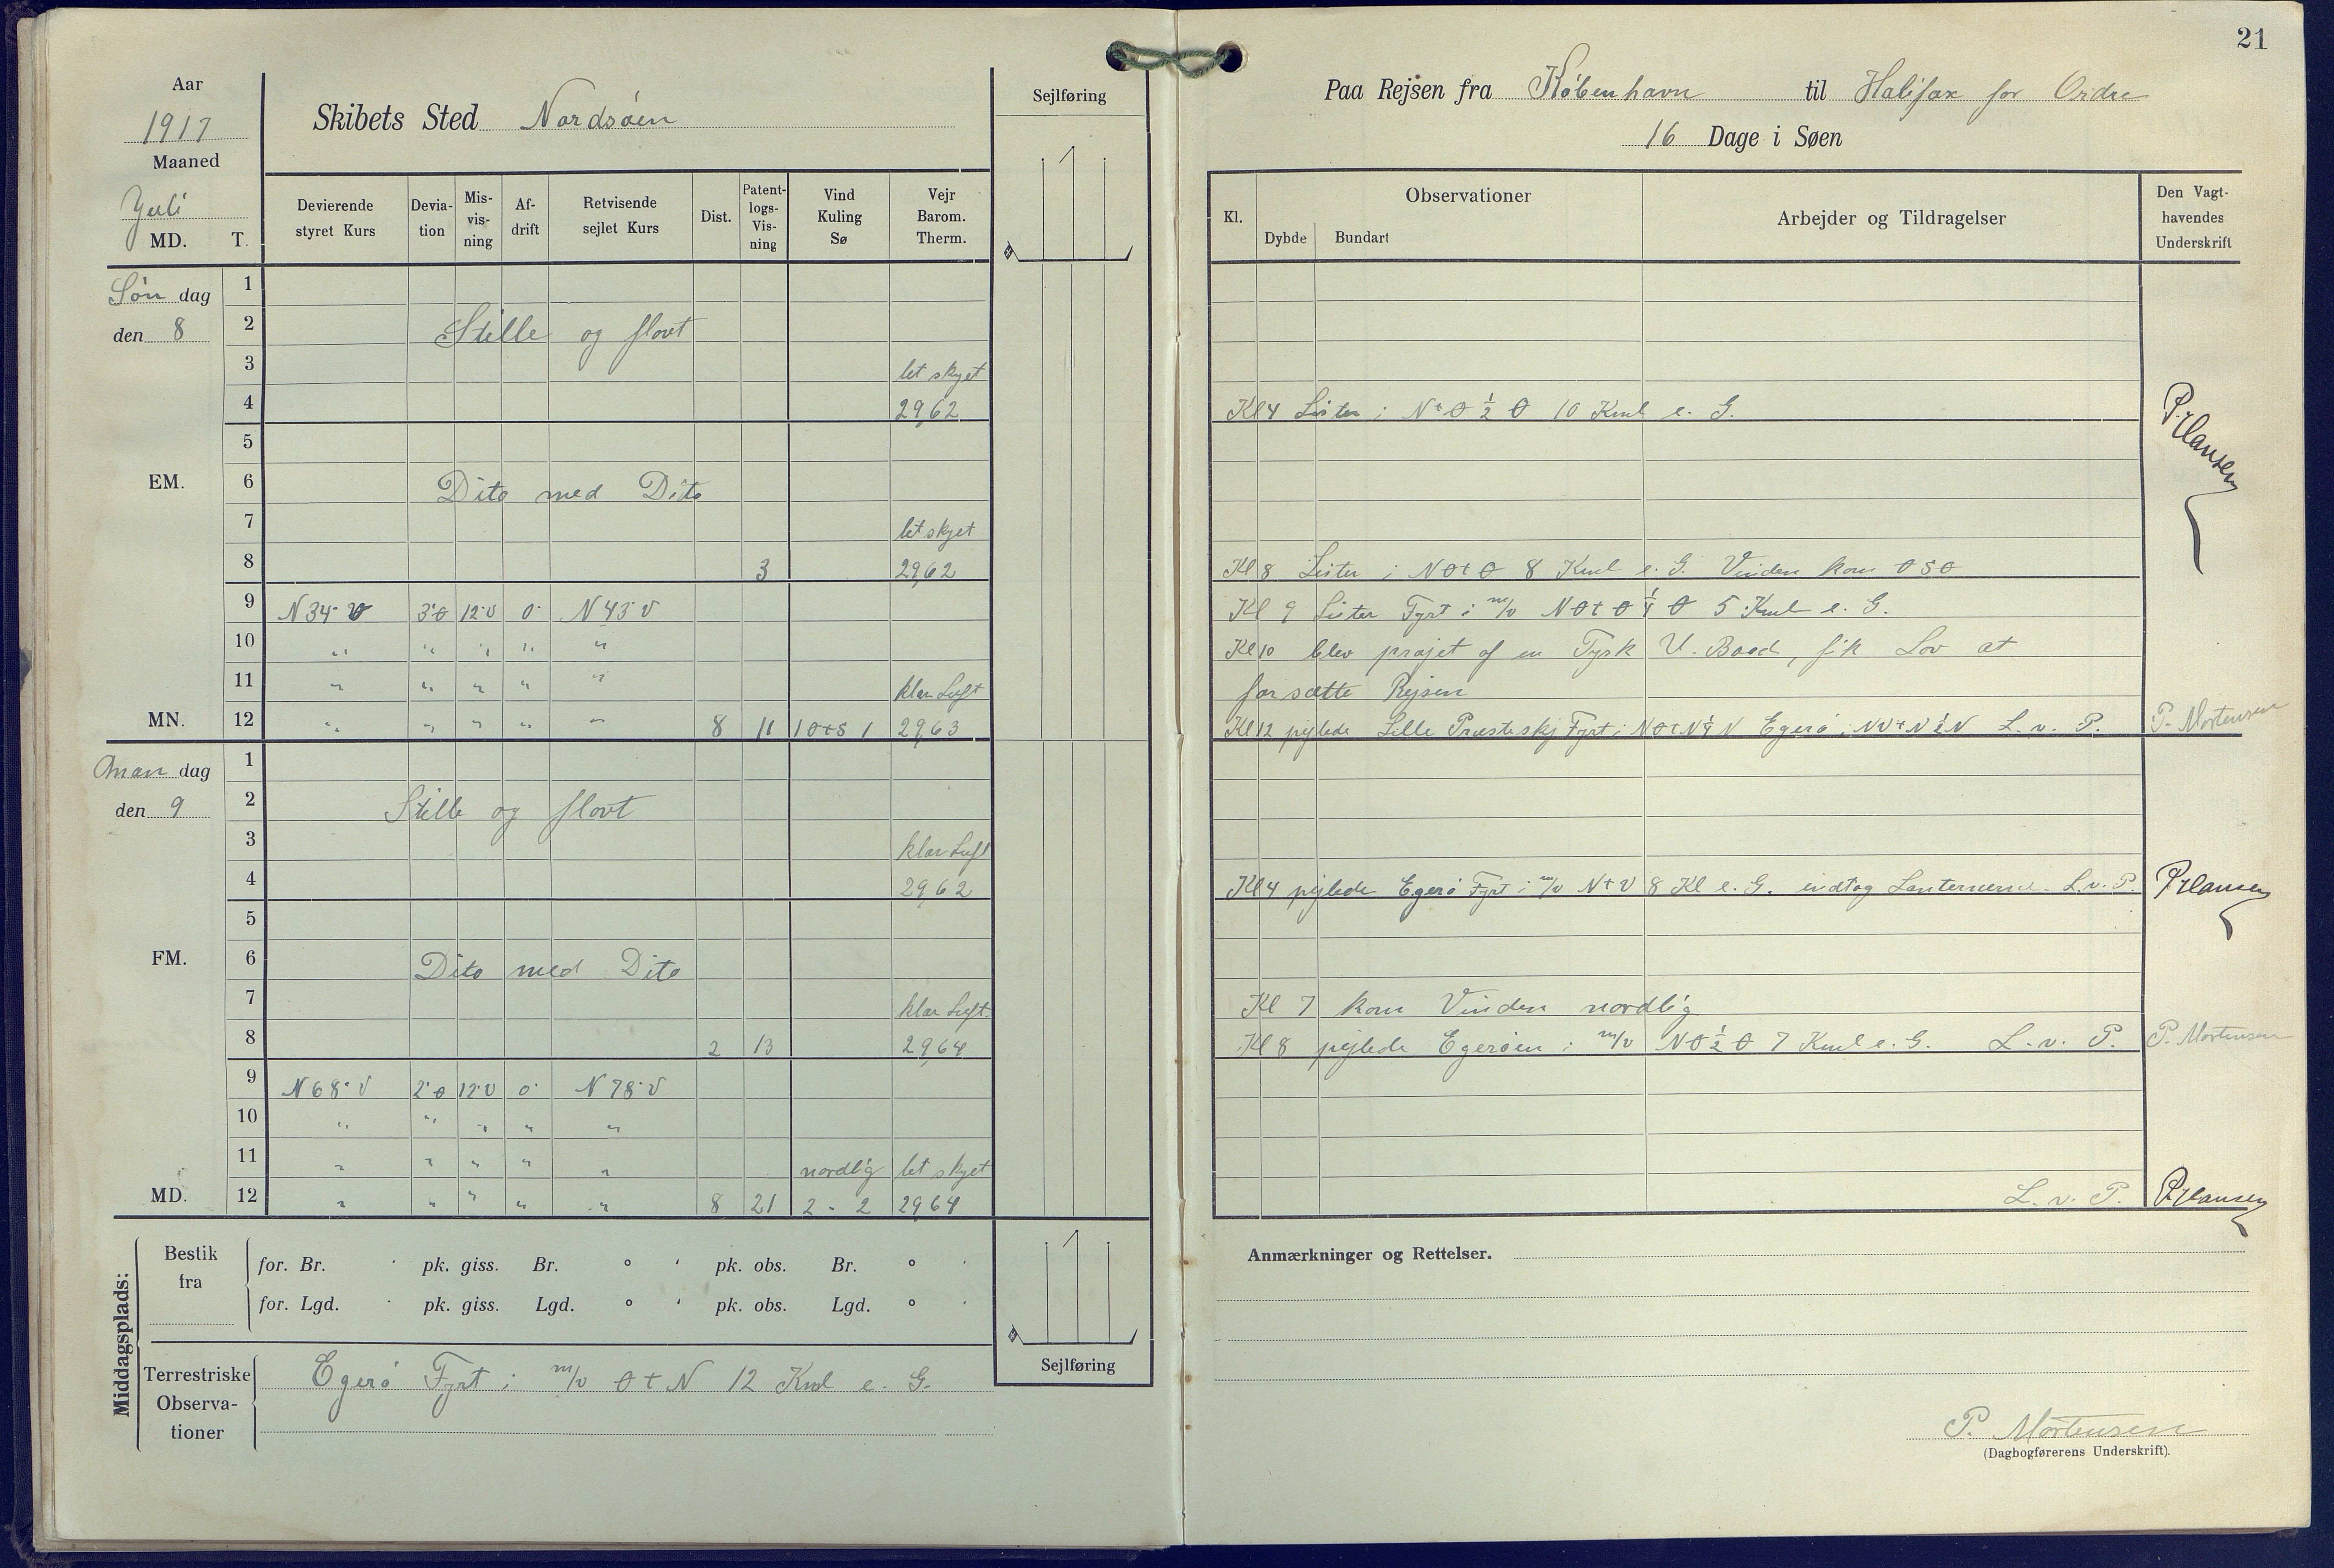 21
Aar
1917
Maaned
Juli
MD. T.
Skibets Sted Nordsøen
Sejlføring
Paa Rejsen fra København til Halifax for Ordre
16 Dage i Søen
Devierende styret Kurs
Devia-tion
Mis-vis-ning
Af-drift
Retvisende sejlet Kurs
Dist.
Patent-logs-Vis-ning
Vind Kuling Sø
Vejr Barom. Therm.
Kl.
Observationer
Dybde Bundart
Arbejder og Tildragelser
Den Vagt-havendes Underskrift
Søn dag
den 8
1
2 Stille og flovt
3 let skyet
4 29,62
5
EM. 6 Dito med Dito
7 let skyet
8 3 29,62
9 N 34° V 3°Ø 12°V 0° N 43° V
10 " " " " "
11 " " " " " klar Luft
MN. 12 " " " " " 8 11 1 Ø t S 1 29,63
Man dag
den 9
1
2 Stille og flovt
3 klar Luft
4 29,62
5
FM. 6 Dito med Dito
7 klar Luft.
8 2 13 29,64
9 N 68° V 2°Ø 12°V 0° N 78° V
10 " " " " "
11 " " " " " nordlig let skyet
MD. 12 " " " " " 8 21 2 - 2 29,64
Kl 4 Lister i N t Ø ½ Ø 10 Kml e. G.
P. Hansen
Kl 8 Lister i N Ø t Ø 8 Kml e. G. Vinden kom Ø S Ø
Kl 9 Lister Fyrt i m/v N Ø t Ø ¼ Ø 5 Kml e. G.
Kl 10 blev prajet af en Tysk U. Baad, fik Lov at
forsætte Rejsen
Kl 12 pejlede Lille Præsteskj Fyrt i N Ø t N ¼ N Egerø i N V t N ½ N L. v. P. P. Mortensen
Kl 4 pejlede Egerø Fyrt i m/v N t V 8 Kl e. G. indtog Lanternerne. L. v. P. P. Hansen
Kl 7 kom Vinden nordlig
Kl 8 pejlede Egerøen i m/v N Ø ½ Ø 7 Kml e. G. L. v. P. P. Mortensen
L. v. P. P. Hansen
Middagsplads:
Bestik fra
for. Br. ' pk. giss. Br. ° ' pk. obs. Br. ° '
for. Lgd. ' pk. giss. Lgd. ° ' pk. obs. Lgd. ° '
Terrestriske Observa-tioner
Egerø Fyrt i m/v Ø t N 12 Kml e. G.
Sejlføring
Anmærkninger og Rettelser.
P. Mortensen
(Dagbogførerens Underskrift).